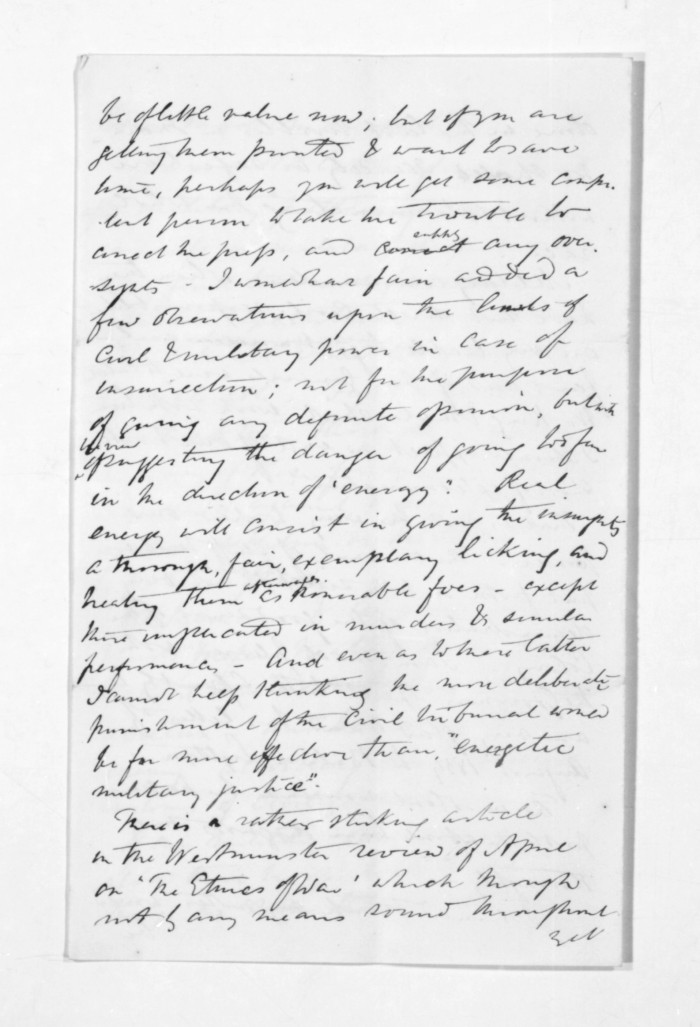 be of little value now; but if you are
getting them printed & want to save
time, perhaps you will get some compe-
tent person to take the trouble to
correct the press, and any over-
sights - I would have fain added a
few observations upon the limits of
Civil & military power in case of
insurrection; not for the purpose
of giving any definite opinion, but with
a view
of suggesting the danger of going too far
in the direction of "energy". Real
energy will consist in giving the insurgents
a thorough, fair, exemplary licking, and
treating them afterwards as honorable foes - except
those implicated in murders & similar
performances - And even as to these latter
I cannot help thinking the more deliberate
punishment of the Civil tribunal would
be far more effective than, "energetic
military justice".
There is a rather striking article
in the Westminster review of April
on "The Ethics of War" which though
not by any means sound throughout
yet